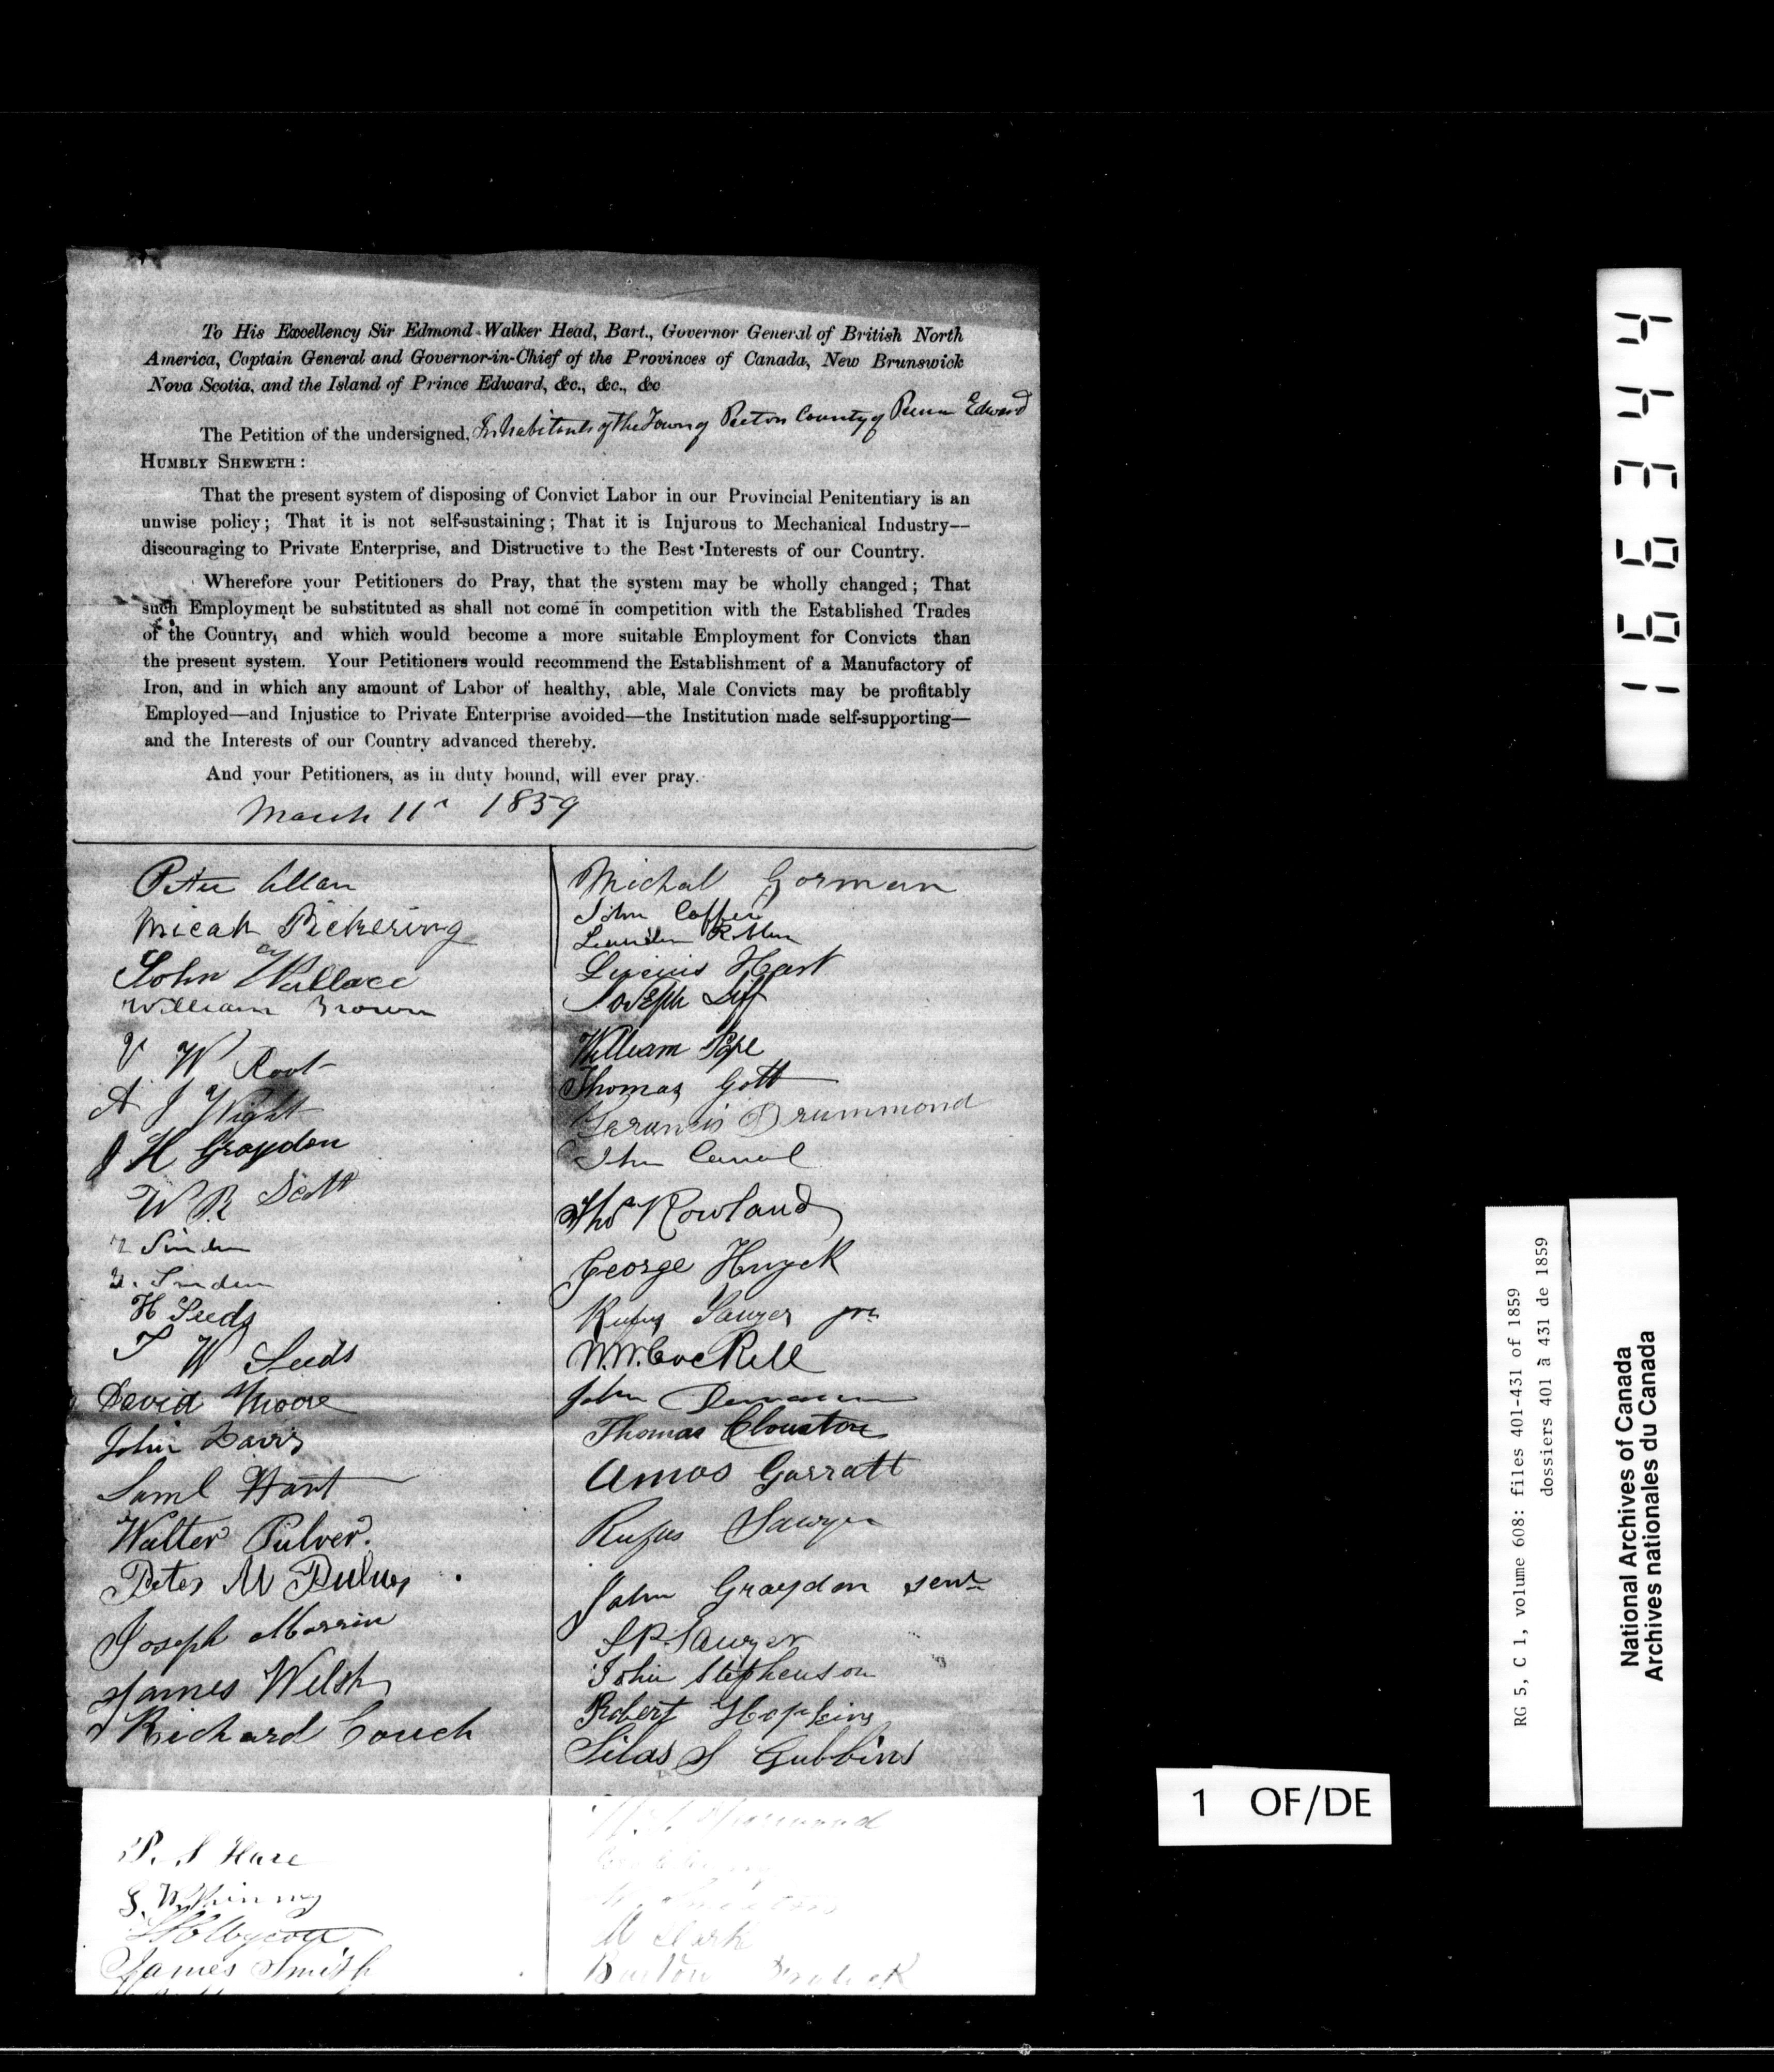 To His Excellency Sir Edmond Walker Head, Bart., Governor General of British North
America, Captain General and Governor-in-Chief of the Provinces of Canada, New Brunswick
Nova Scotia, and the Island of Prince Edward, &c., &c., &c
The Petition of the undersigned, Inhabitants of the Town of Picton County of Prince Edward
HUMBLY SHEWETH :
That the present system of disposing of Convict Labor in our Provincial Penitentiary is an
unwise policy; That it is not self-sustaining; That it is Injurous to Mechanical Industry—
discouraging to Private Enterprise, and Distructive to the Best Interests of our Country.
Wherefore your Petitioners do Pray, that the system may be wholly changed; That
such Employment be substituted as shall not come in competition with the Established Trades
of the Country, and which would become a more suitable Employment for Convicts than
the present system. Your Petitioners would recommend the Establishment of a Manufactory of
Iron, and in which any amount of Labor of healthy, able, Male Convicts may be profitably
Employed—and Injustice to Private Enterprise avoided—the Institution made self-supporting—
and the Interests of our Country advanced thereby.
And your Petitioners, as in duty bound, will ever pray.
March 11th 1859
Peter Allan
Micah Pickering
John Wallace
William Brown
W Root
A J Wight
J H Graydon
W R Scott
H Leeds
T W Leeds
David Moore
John Davis
Saml Hart
Walter Pulver.
Peter M Pulver
Joseph Morrin
James Welsh
Richard Couch
P. S Hare
James Smith
Michal Gorman
John
Lucius Hart
Joseph
William Pope
Thomas Gott
Farancis Drummond
Thos Rowland
George Huyck
Rufus Sawyer jun
W.W. Cockell
John
Thomas Clouston
Amos Garratt
Rufus Sawyer
John Graydon senr
S P. Sawyer
John Stephenson
Robert Hopkins
Silas S Gubbins
M Clark
Barton
166344
1 OF/DE
RG 5, C 1, volume 608: files 401-431 of 1859
dossiers 401 à 431 de 1859
National Archives of Canada
Archives nationales du Canada